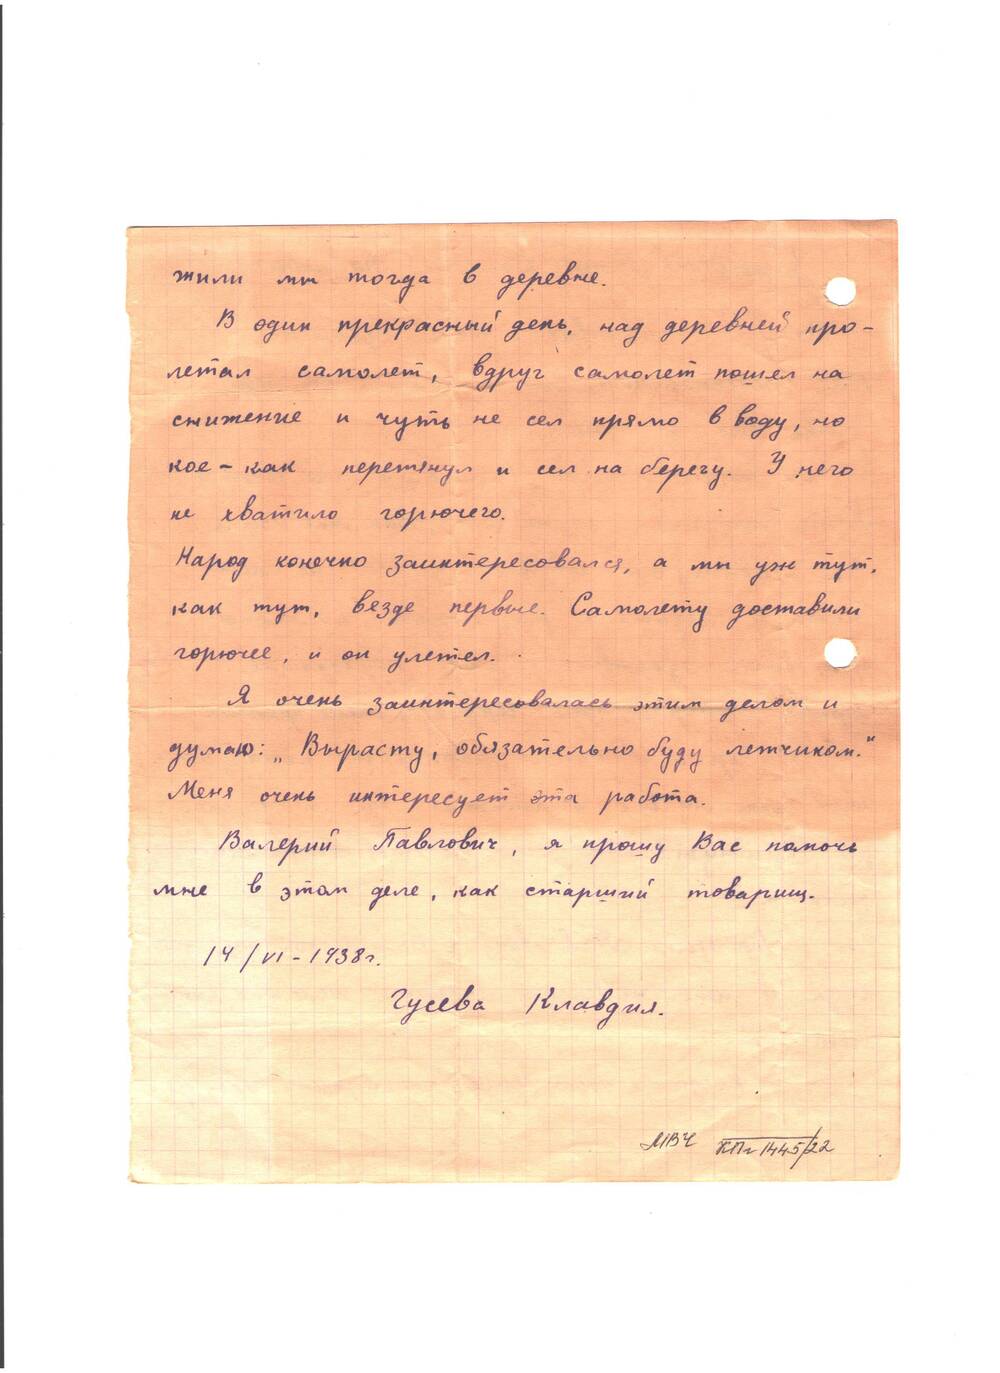 жили мы тогда в деревне.
В один прекрасный день, над деревней про-
летал самолет, вдруг самолет пошел на
снижение и чуть не сел прямо в воду, но
кое-как перетянул и сел на берегу. У него
не хватило горючего.
Народ конечно заинтересовался, а мы уж тут,
как тут, везде первые. Самолету доставили
горючее, и он улетел.
Я очень заинтересовалась этим делом и
думаю: „Вырасту, обязательно буду летчиком."
Меня очень интересует эта работа.
Валерий Павлович, я прошу Вас помочь
мне в этом деле, как старший товарищ.
14/VI-1938г.
Гусева Клавдия.
МВЧ КПг 1445/22